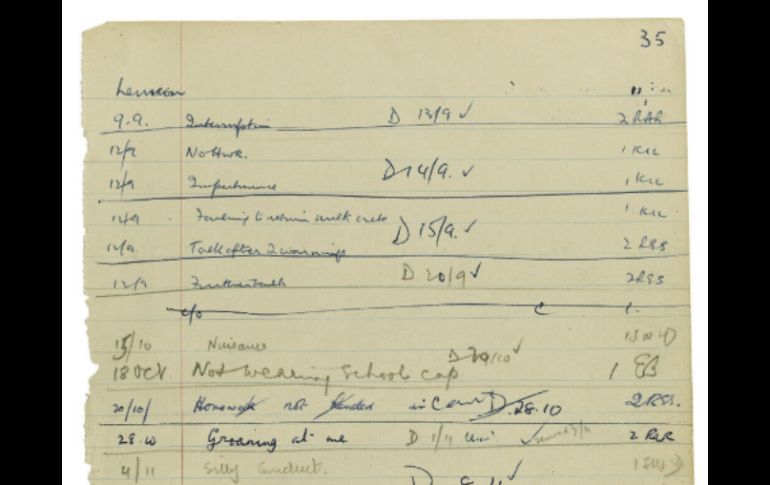 35
Lennon
9.9. Interruption D 13/9 ✓ 2 RAR
12/9 No Hwe. 1 KLL
12/9 Impertinence D 14/9. ✓ 1 KLL
12/9 Forgetting to return milk crate 1 KLL
12/9. Talk after 2 warnings D 15/9. ✓ 2 RSS
12/9 Further talk D 20/9 ✓ 2RSS
c/o C 1.
15/10 Nuisance ✓
18 OCT. Not wearing school cap 1
20/10/ Homework not handed in D. 28.10 2 RSS.
28.10 Groaning at me D 1/11 ✓ 2
4/11 Silly Conduct.
D ✓